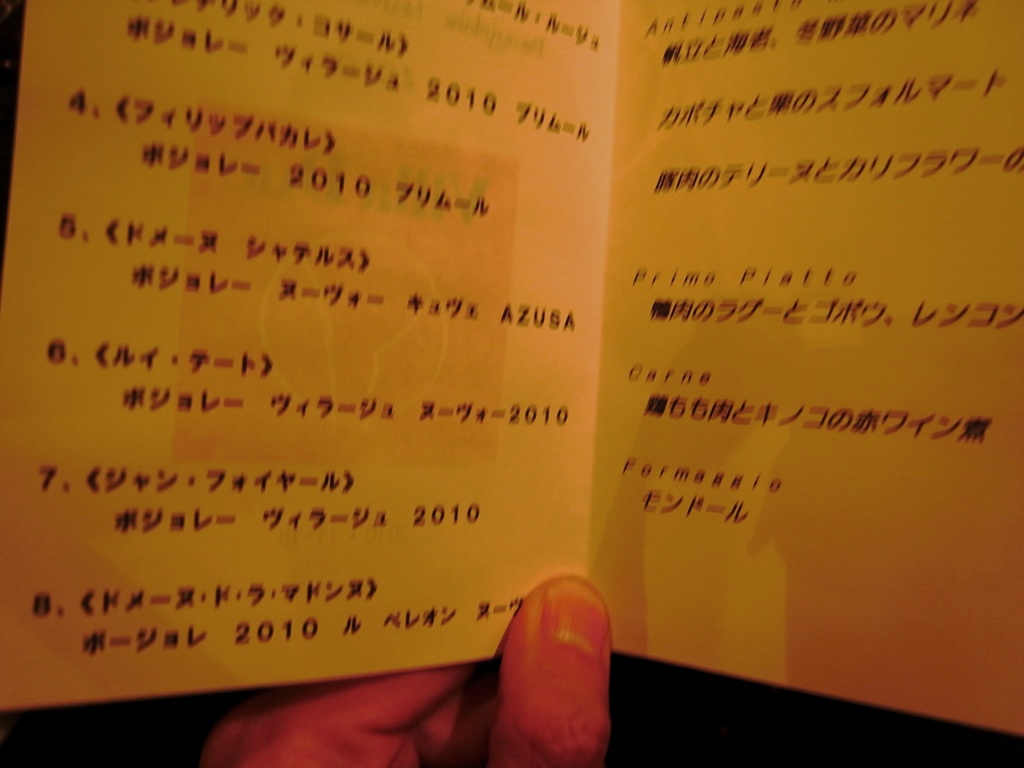 ムール・ルージュ
ドリック・コサール》
ボジョレー ヴィラージュ 2010 プリムール
4、《フィリップパカレ》
ボジョレー 2010 プリムール
5、《ドメーヌ シャテルス》
ボジョレー ヌーヴォー キュヴェ AZUSA
6、《ルイ・テート》
ボジョレー ヴィラージュ ヌーヴォー2010
7、《ジャン・フォイヤール》
ボジョレー ヴィラージュ 2010
8、《ドメーヌ・ド・ラ・マドンヌ》
ボージョレ 2010 ル ペレオン ヌーヴ
Antipasto
帆立と海老、冬野菜のマリネ
カボチャと栗のスフォルマート
豚肉のテリーヌとカリフラワーの
Primo Piatto
鴨肉のラグーとゴボウ、レンコン
Carne
鶏もも肉とキノコの赤ワイン煮
Formaggio
モンドール